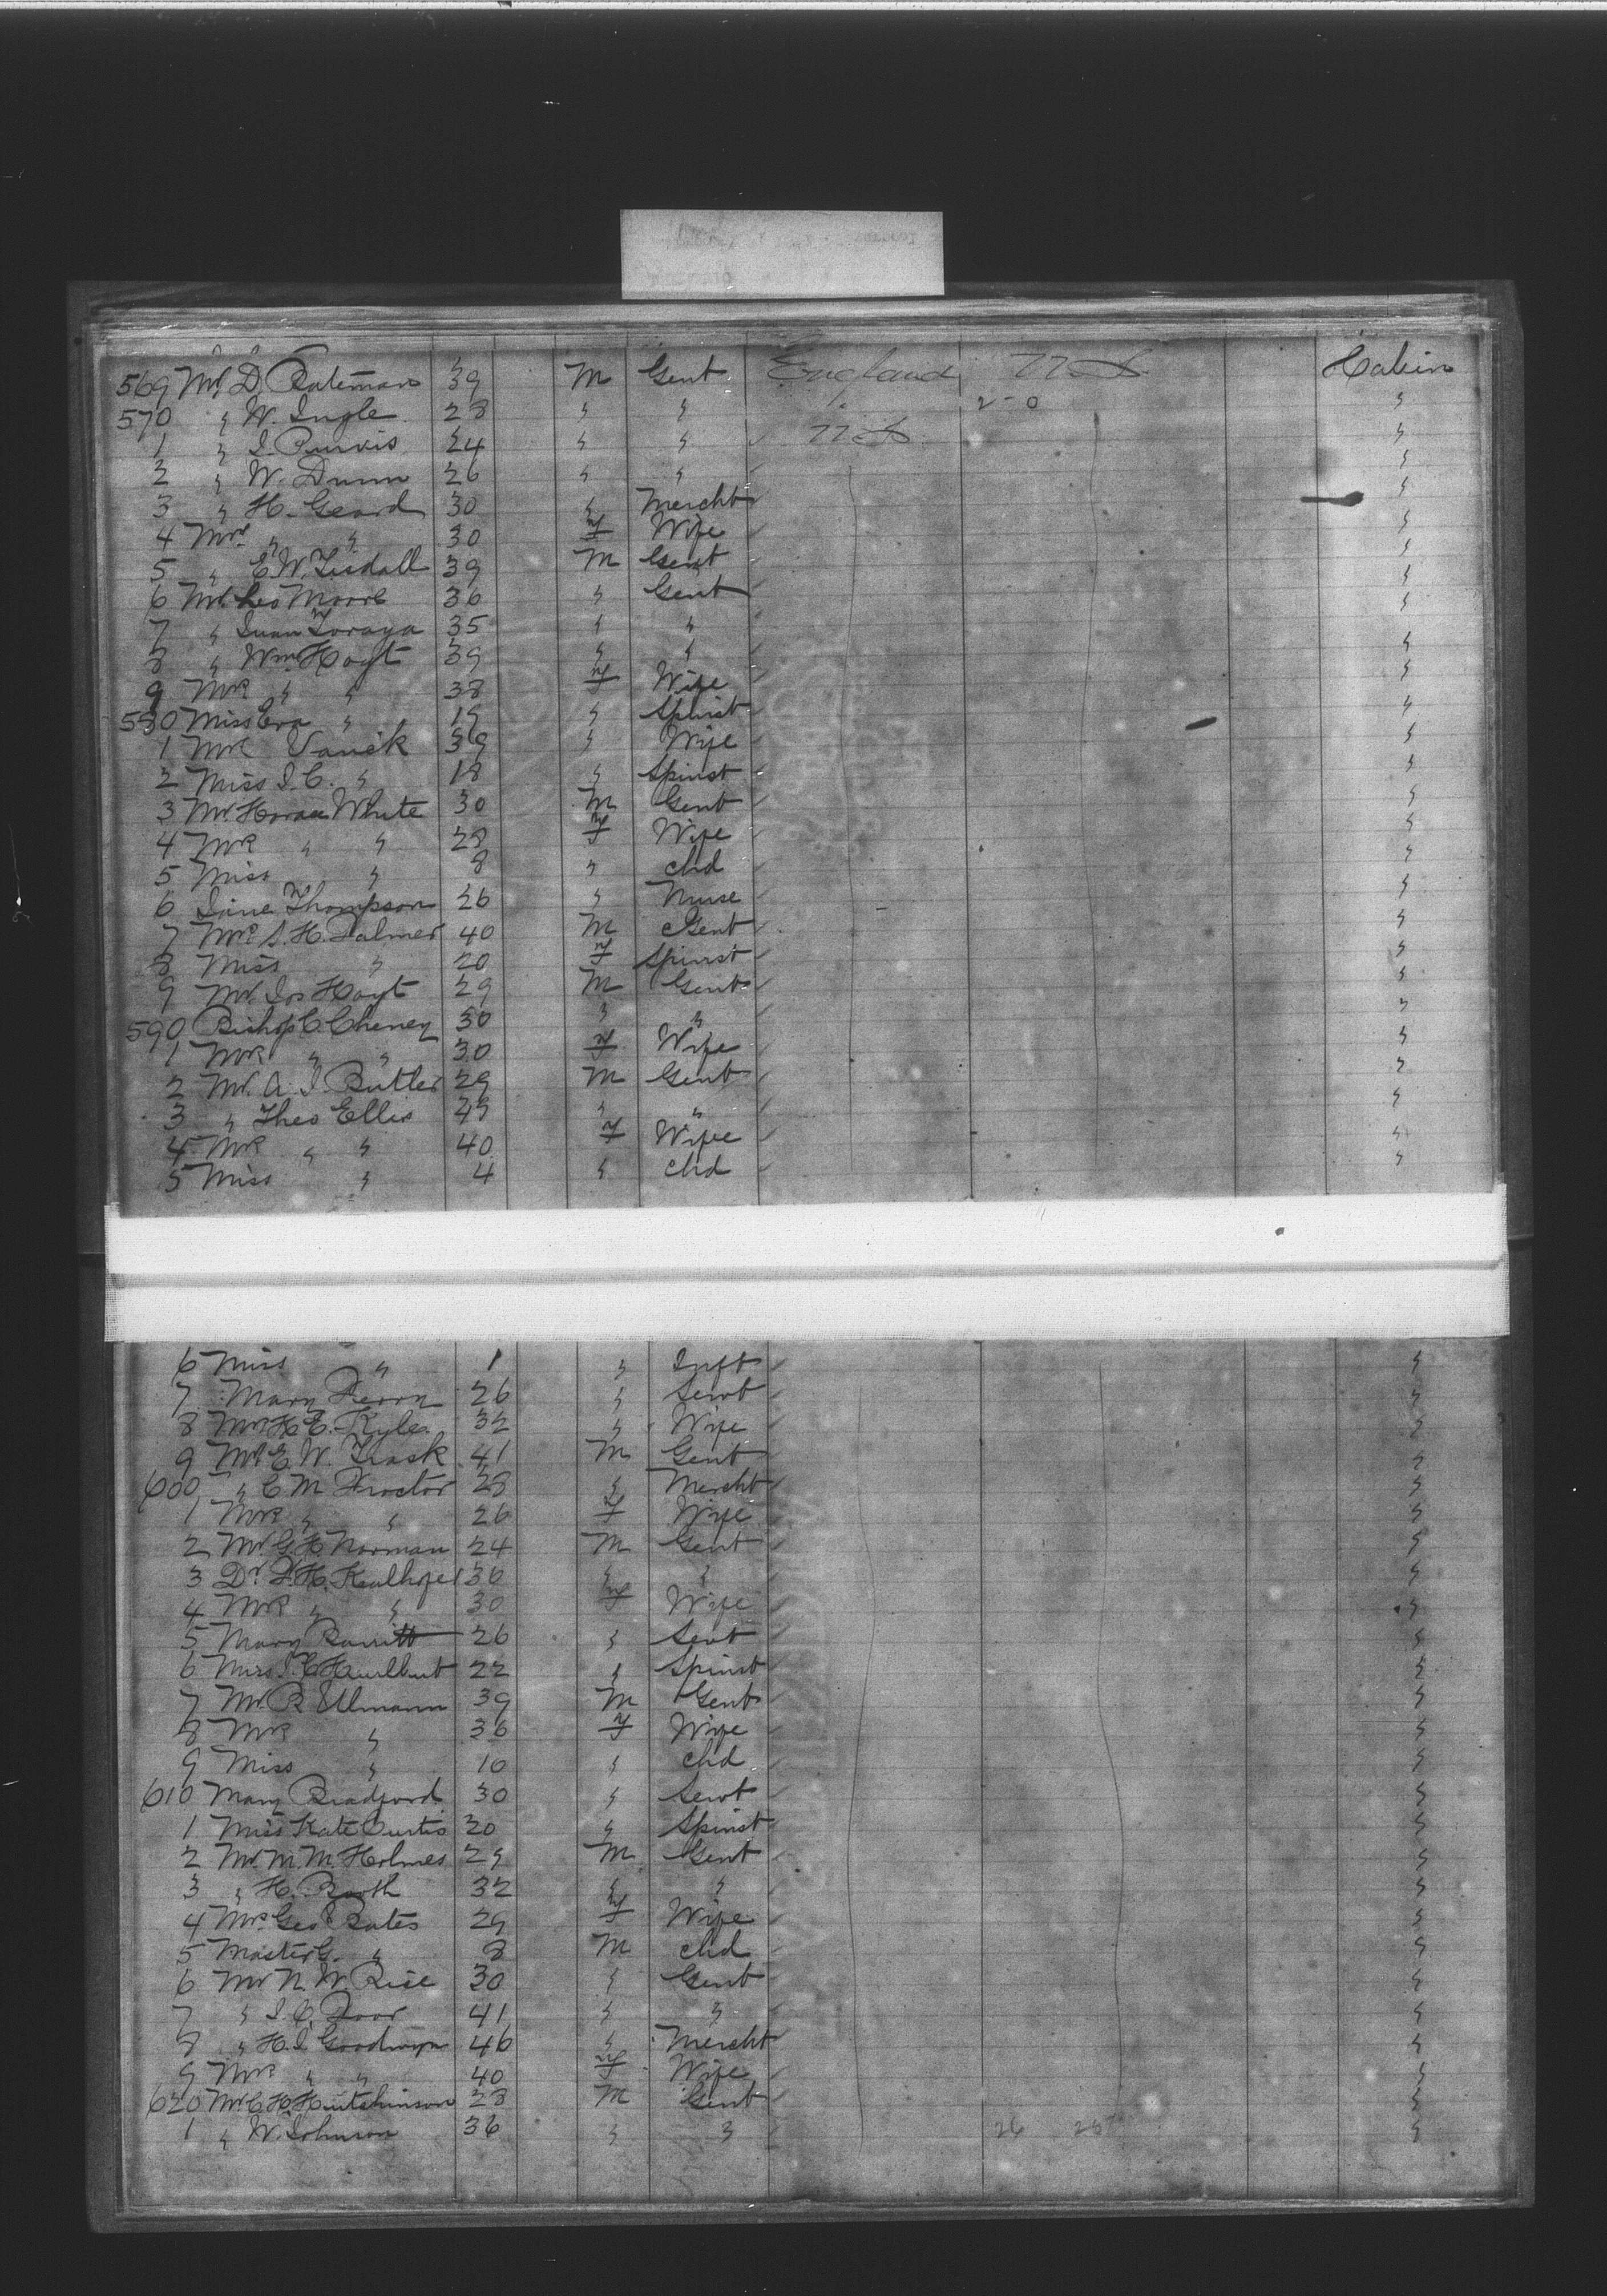 569 Mr D. Bateman 39 M Gent England U S Cabin
570 " W. Ingle 28 " " 2-0 "
1 " J. Purvis 24 " " U S "
2 " W. Dunn 26 " " "
3 " H. Geard 30 " Mercht "
4 Mrs " " 30 F Wife "
5 " E.W. Tisdall 39 M Gent "
6 Mr. Leo Moore 36 " Gent "
7 " Juan Zoraya 35 " " "
8 " Wm Hoyt 39 " " "
9 Mrs " " 38 F Wife "
580 Miss Eva " 19 " Spinst "
1 Mrs 39 " Wife "
2 Miss J.C. " 18 " Spinst "
3 Mr. Horace White 30 M Gent "
4 Mrs " " 28 F Wife "
5 Miss " 8 " chd "
6 Jane Thompson 26 " Nurse "
7 Mr S.H. Palmer 40 M Gent "
8 Miss " 20 F Spinst "
9 Mr. Jos Hoyt 29 M Gent "
590 Bishop C. Cheney 30 " " "
1 Mrs " " 30 F Wife "
2 Mr. A. J. Butler 29 M Gent "
3 " Theo Ellis " " "
4 Mrs " " 40 F Wife "
5 Miss " 4 " chd "
6 Miss " 1 " Inft "
7 Mary 26 " Servt "
8 Mrs H.E. Kyle 32 " Wife "
9 Mr E. W. Trask 41 M Gent "
600 " C. M. Proctor 28 " Mercht "
1 Mrs " " 26 F Wife "
2 Mr. G.H. Norman 24 M Gent "
3 Dr. 36 " " "
4 Mrs " " 30 F Wife "
5 Mary Barritt 26 " Servt "
6 Miss J.C. Hurlbut 22 " Spinst "
7 Mr. B. Ulmann 39 M Gent "
8 Mrs " 36 F Wife "
9 Miss " 10 " chd "
610 Mary Bradford 30 " Servt "
1 Miss Kate Curtis 20 " Spinst "
2 Mr. M. M. Holmes 29 M Gent "
3 " H. Booth 32 " " "
4 Mrs Geo Bates 29 F Wife "
5 Master G. " 8 M chd "
6 Mr N. W. Rice 30 " Gent "
7 " J. C. 41 " " "
8 " H.J. Goodwyn 46 " Mercht "
9 Mrs " " 40 F Wife "
620 Mr. C. H. Hutchinson 28 M Gent "
1 " W. Johnson 36 " " 26 25 "